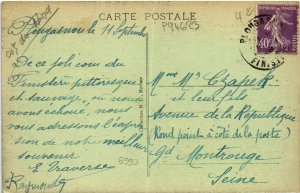 CARTE POSTALE
Plougasnou le 11 Septembre
De ce joli coin du
Finistère pittoresque
et sauvage, où nous
avons échoué, nous
vous adressons l'expres-
sion de notre meilleur
souvenir
E. Traverse
Raymonde
Mme Mr Czapek
et leur fils
Avenue de la République
(Rond point à côté de la poste)
Gd Montrouge
Seine
FINIST
40c
P946183